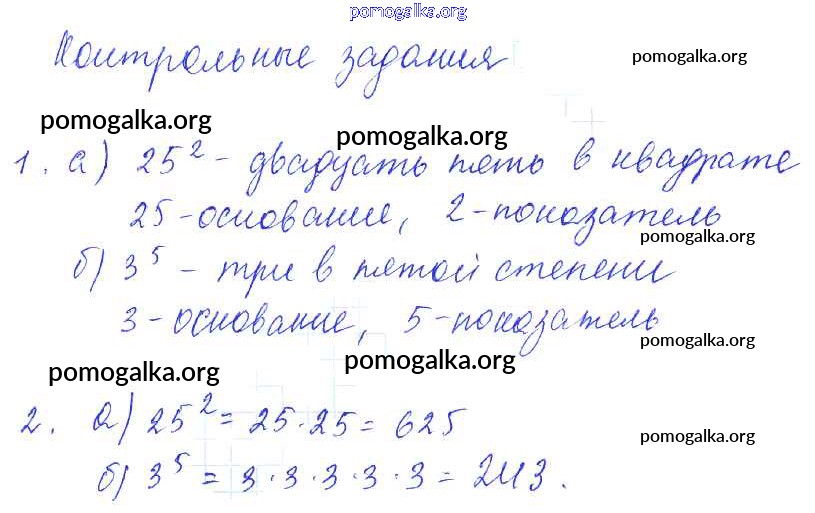 pomogalka.org
Контрольные задания
pomogalka.org
pomogalka.org
pomogalka.org
1. а) 25² - двадцать пять в квадрате
25 - основание, 2 - показатель
pomogalka.org
б) 3⁵ - три в пятой степени
3 - основание, 5 - показатель
pomogalka.org
pomogalka.org
pomogalka.org
2. а) 25² = 25 · 25 = 625
pomogalka.org
б) 3⁵ = 3 · 3 · 3 · 3 · 3 = 243.